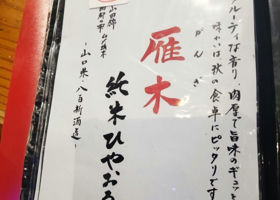 フルーティな香り 肉厚で旨味のギュッと
味わいは秋の食卓にピッタリです
がんぎ
雁木
純米ひやおろ
〜山口県・八百新酒造〜